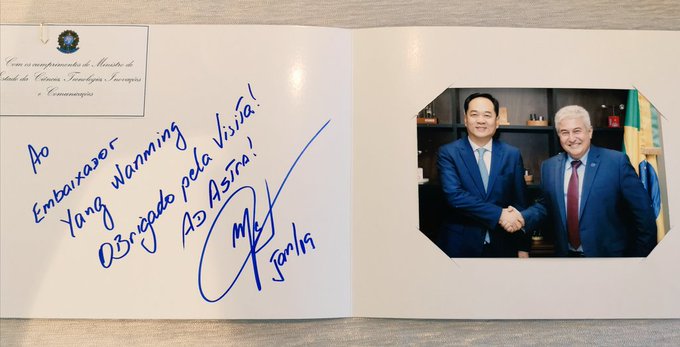 Com os cumprimentos do Ministro de
Estado da Ciência, Tecnologia, Inovações
e Comunicações
Ao
Embaixador
Yang Wanming
Obrigado pela Visita!
Ad Astra!
jan/19